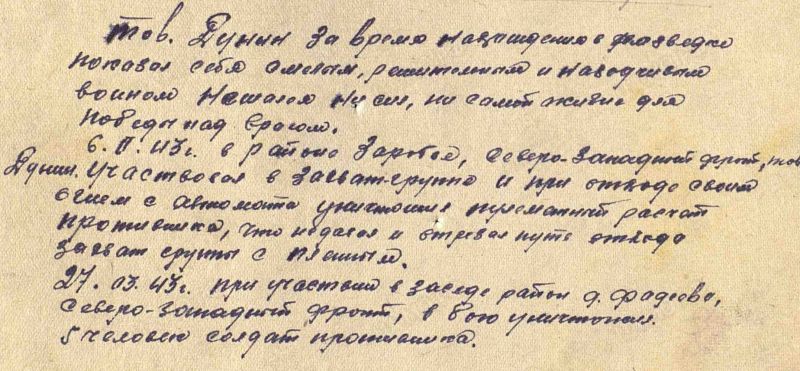 тов. Дунин за время нахождения в разведке
показал себя смелым, решительным и находчивым
воином не шалея ни сил, ни самой жизни для
победы над врагом.
6. II. 43г. в районе Заробье, Северо-Западный фронт, тов.
Дунин. участвовал в захват-группе и при отходе своим
огнем с автомата уничтожил пулеметный расчет
противника, что недавал и отрезал путь отхода
захват группы с пленным.
27. 03. 43г. при участии в засаде район д. Фадеево,
Северо-Западный фронт, в бою уничтожил
5 человек солдат противника.